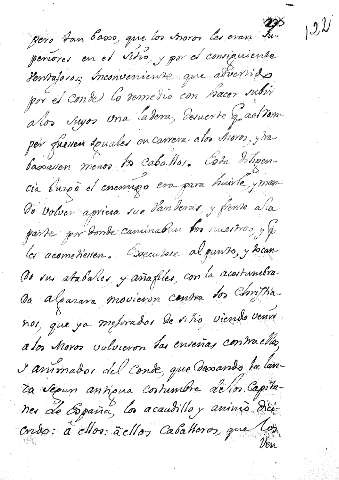 122
pero tan baxo, que los Moros les eran Su-
periores en el Sitio, y por el consiguiente
Ventajosos; Inconveniente que advertido
por el Conde lo remedió con hacer subir
a los suyos una ladera, desuerte q. al tiem
po fuesen iguales en carrera a los Moros, y tra
baxasen menos los Caballos. Esta diligen-
cia juzgó el enemigo era para huirle, y man-
dó volver apriesa sus Vanderas, y frente a la
parte por donde caminaban los nuestros, y q.
les acometiesen. Executose al punto, y tocan
do sus atabales, y añafiles, con la acostumbra
da algazara movieron contra los Christia-
nos, que ya mejorados de sitio, viendo venir
a los Moros volvieron las enseñas contra ellos
y animados del Conde, que tomando la lan-
za segun antigua costumbre de los Capita-
nes de España, los acaudilló y animó dici-
endo: à ellos: à ellos Caballeros, que los
ven